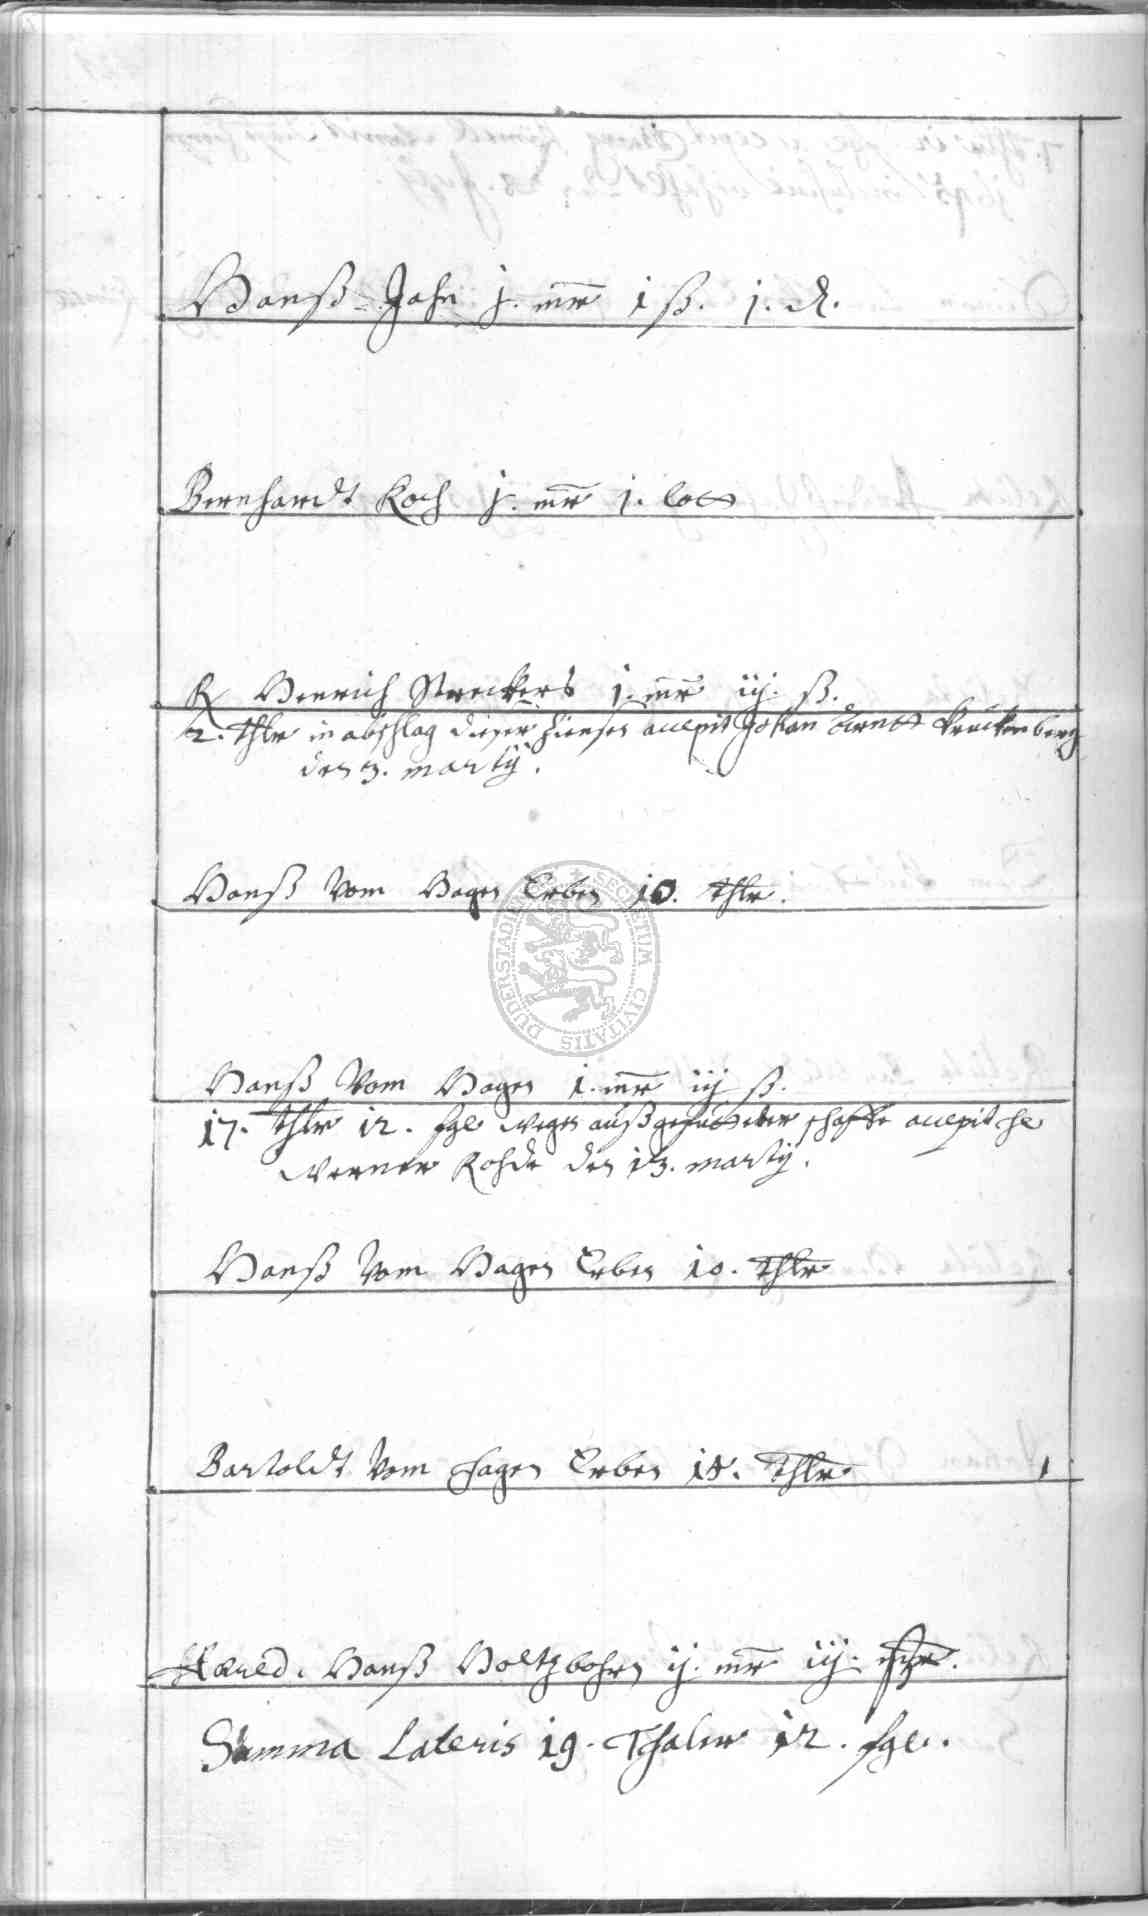 Hanß Jahn j. mr 1 ß. j. d.
Bernhardt Koch j. mr j. lott
R Henrich Streckers j. mr iij. ß.
2. Thlr in abschlag dieser Zinsen accepit Johan Arnott Kruckenberg
den 3. martij.
Hanß Vom Hagen Erben 10. Thlr.
SECRETUM CIVITATIS DUDERSTADIENSIS
Hanß Vom Hagen 1. mr iij ß.
17. Thlr 12. sgl wegen außgefutterter schaffe accepit H
Werner Rohde den 13. martij.
Hanß Vom Hagen Erben 10. Thlr
Bartoldt Vom Hagen Erben 18. Thlr
Hæred. Hanß Holtzbohrn ij. mr iij.
Summa Lateris 19. Thaler 12. sgl.